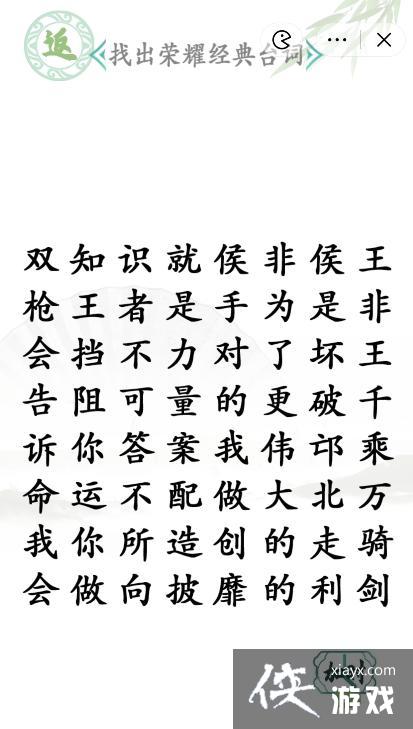 返
找出荣耀经典台词
双知识就侯非侯王
枪王者是手为是非
会挡不力对了坏王
告阻可量的更破千
诉你答案我伟邙乘
命运不配做大北万
我你所造创的走骑
会做向披靡的利剑
xiayx.com
侠游戏